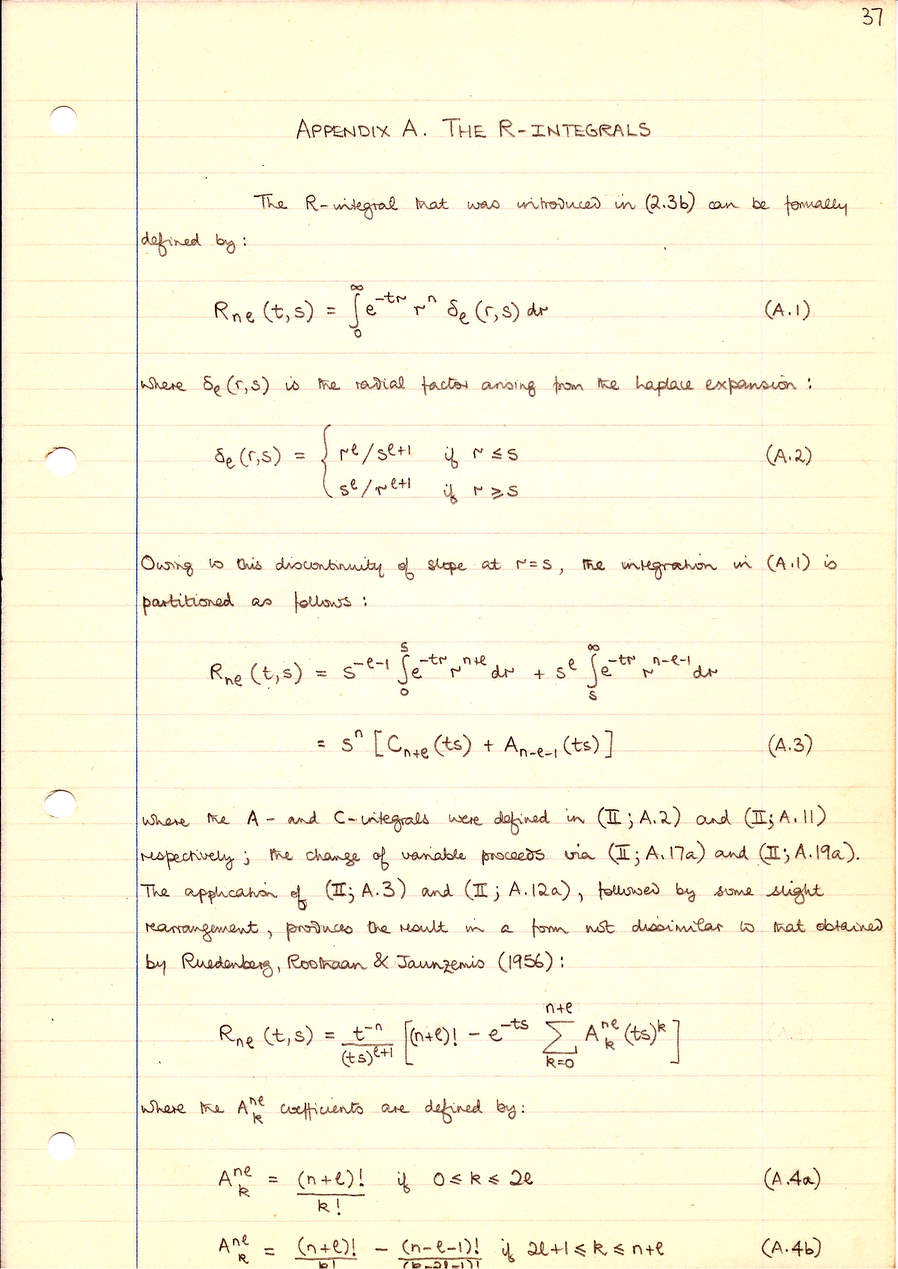 37
APPENDIX A. THE R-INTEGRALS
The R-integral that was introduced in (2.3b) can be formally
defined by:
Rₙₗ (t,s) = ∫₀^∞ e^{-tr} r^n δₗ (r,s) dr (A.1)
where δₗ (r,s) is the radial factor arising from the Laplace expansion:
δₗ (r,s) = { r^ℓ/s^{ℓ+1} if r ≤ s (A.2)
s^ℓ/r^{ℓ+1} if r ≥ s
Owing to this discontinuity of slope at r=s, the integration in (A.1) is
partitioned as follows:
Rₙₗ (t,s) = s^{-ℓ-1} ∫₀^s e^{-tr} r^{n+ℓ} dr + s^ℓ ∫ₛ^∞ e^{-tr} r^{n-ℓ-1} dr
= s^n [C_{n+ℓ} (ts) + A_{n-ℓ-1} (ts)] (A.3)
where the A- and C-integrals were defined in (II; A.2) and (II; A.11)
respectively; the change of variable proceeds via (II; A.17a) and (II; A.19a).
The application of (II; A.3) and (II; A.12a), followed by some slight
rearrangement, produces the result in a form not dissimilar to that obtained
by Ruedenberg, Roothaan & Jaunzemis (1956):
Rₙₗ (t,s) = t^{-n}/(ts)^{ℓ+1} [(n+ℓ)! - e^{-ts} Σ_{k=0}^{n+ℓ} A_k^{nℓ} (ts)^k]
where the A_k^{nℓ} coefficients are defined by:
A_k^{nℓ} = (n+ℓ)!/k! if 0 ≤ k ≤ 2ℓ (A.4a)
A_k^{nℓ} = (n+ℓ)!/k! - (n-ℓ-1)!/(k-2ℓ-1)! if 2ℓ+1 ≤ k ≤ n+ℓ (A.4b)